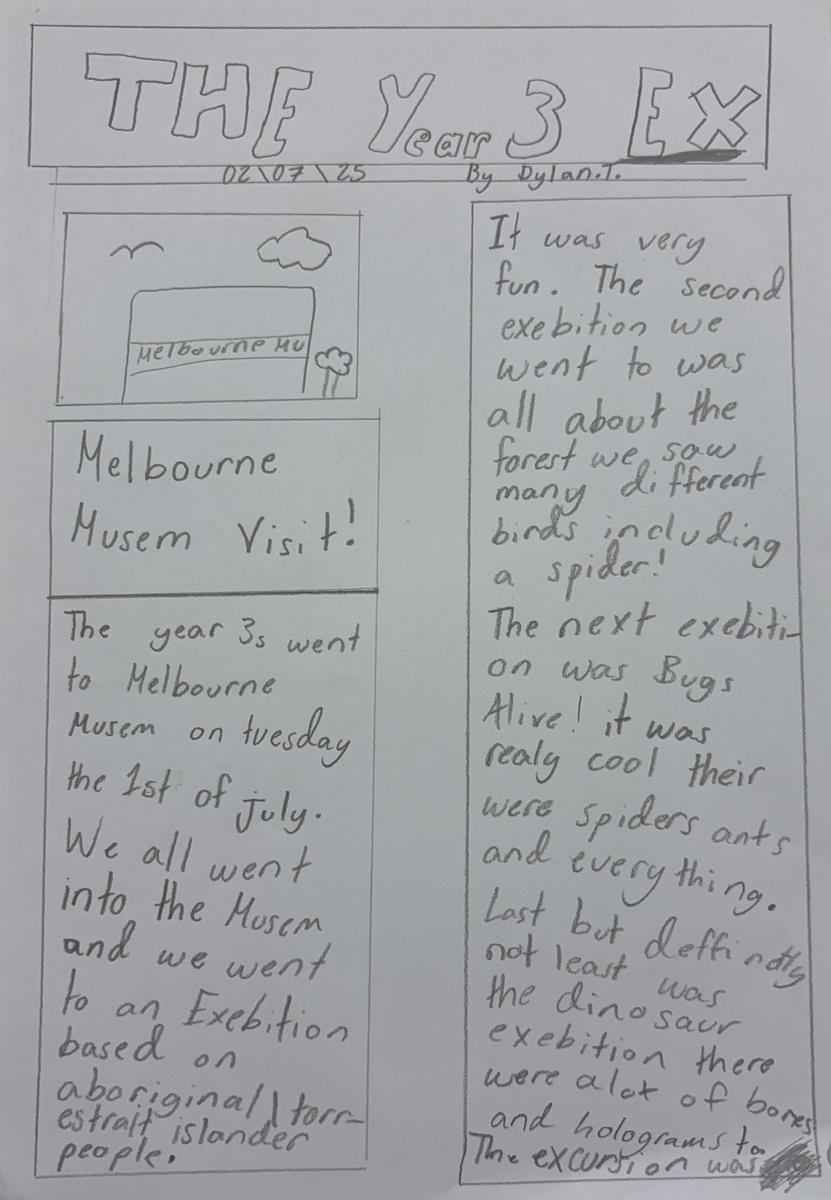 THE Year 3 EX
02\07\25 By Dylan.T.
Melbourne Mu
Melbourne
Musem Visit!
The year 3s went
to Melbourne
Musem on tuesday
the 1st of july.
We all went
into the Musem
and we went
to an Exebition
based on
aboriginal | torr-
estrait islander
people.
It was very
fun. The second
exebition we
went to was
all about the
forest we saw
many different
birds including
a spider!
The next exebiti-
on was Bugs
Alive! it was
realy cool their
were spiders ants
and everything.
Last but deffindtly
not least was
the dinosaur
exebition there
were alot of bones
and holograms to
The excursion was